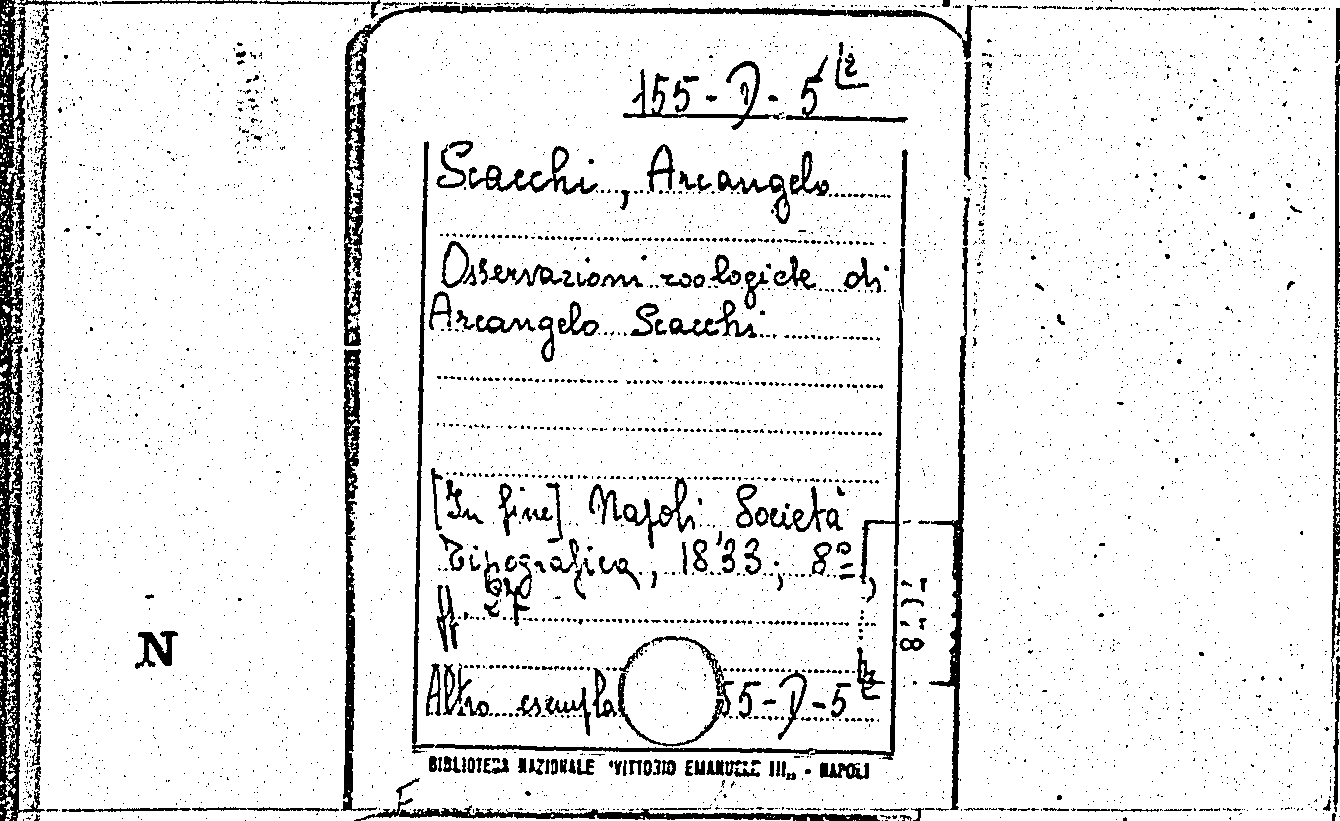 155-D-5
Scacchi, Arcangelo
Osservazioni zoologiche di
Arcangelo Scacchi
[In fine] Napoli, Società
Tipografica, 1833; 8º,
ff. 27
Altro esempla 55-D-5
BIBLIOTECA NAZIONALE "VITTORIO EMANUELE III„ - NAPOLI
N